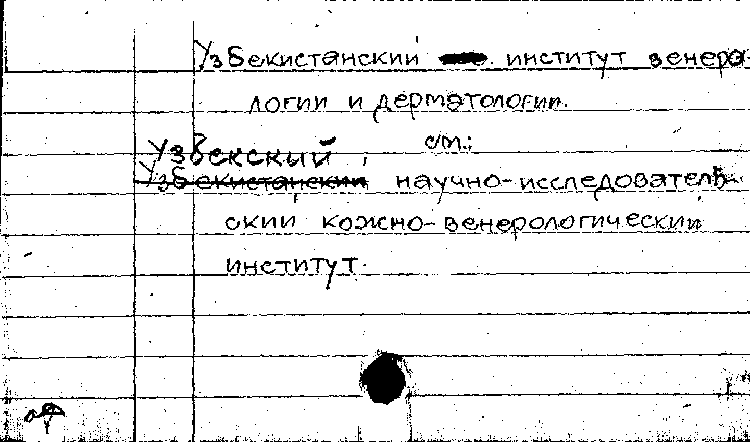 Узбекистанский институт венеро-
логии и дерматологии.
см.:
Узбекский
Узбекистанский научно-исследователь-
ский кожно-венерологический
институт.